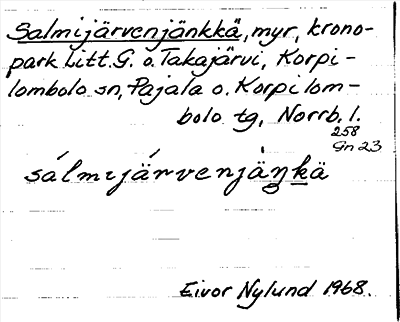 Salmijärvenjänkkä, myr, krono-
park Litt. G. o. Takajärvi, Korpi-
lombolo sn, Pajala o. Korpilom-
bolo tg, Norrb. l.
258
Gn 23
sálmıjárvenjäŋ̀kä
Eivor Nylund 1968.